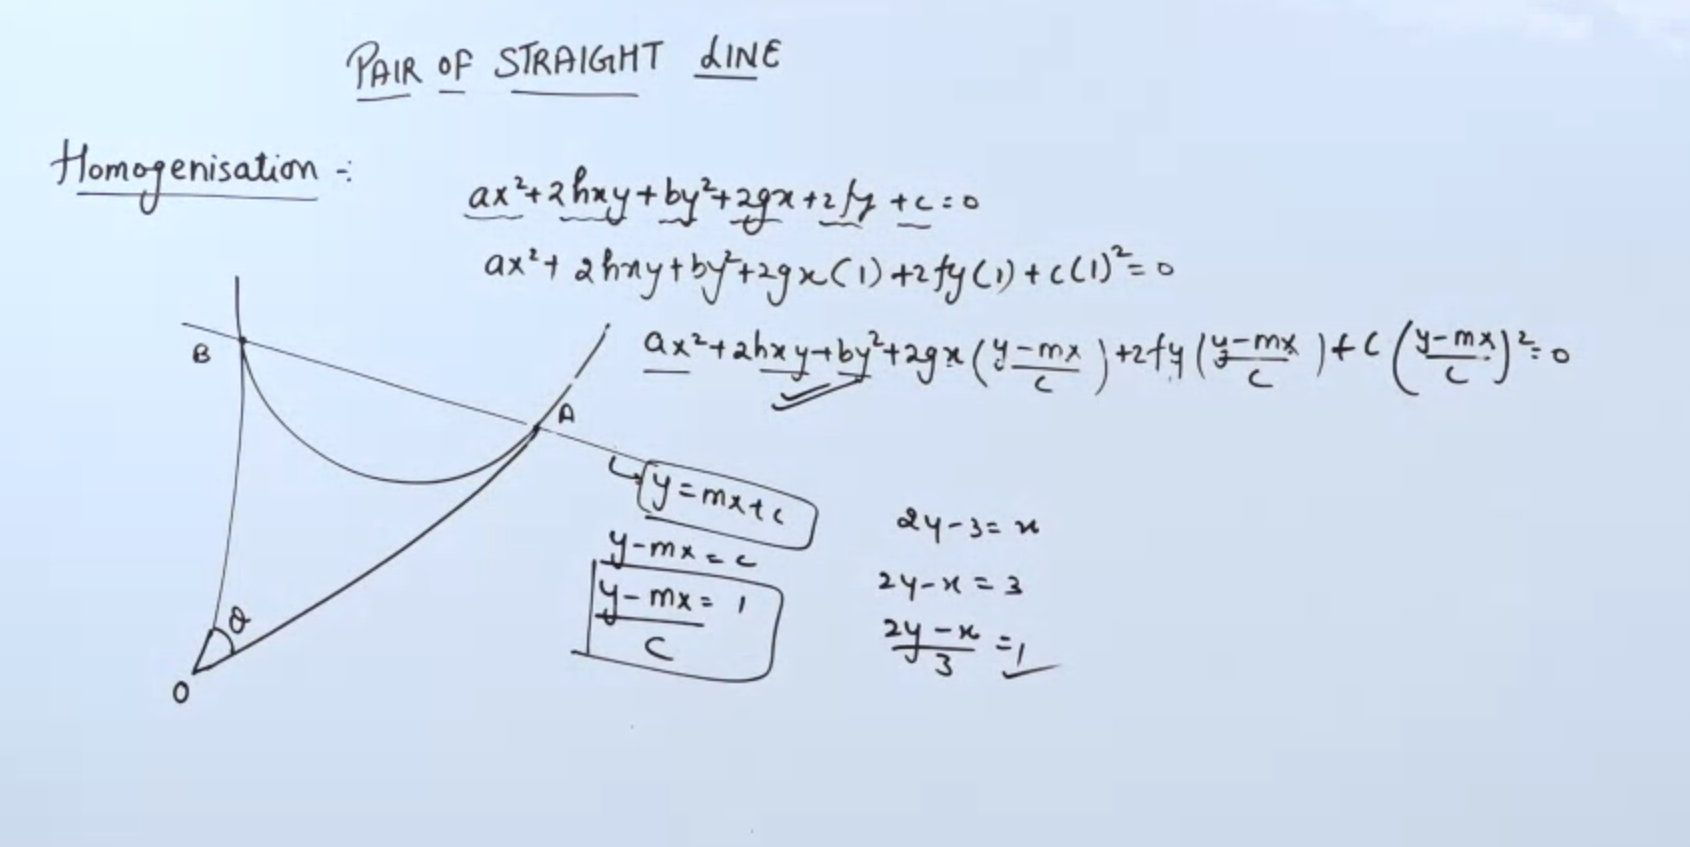 PAIR OF STRAIGHT LINE
Homogenisation :-
ax²+2hxy+by²+2gx+2fy+c=0
ax²+2hxy+by²+2gx(1)+2fy(1)+c(1)²=0
ax²+2hxy+by²+2gx(y-mx/c)+2fy(y-mx/c)+c(y-mx/c)²=0
B
A
y=mx+c
y-mx=c
y-mx/c=1
2y-3=x
2y-x=3
2y-x/3=1
θ
O